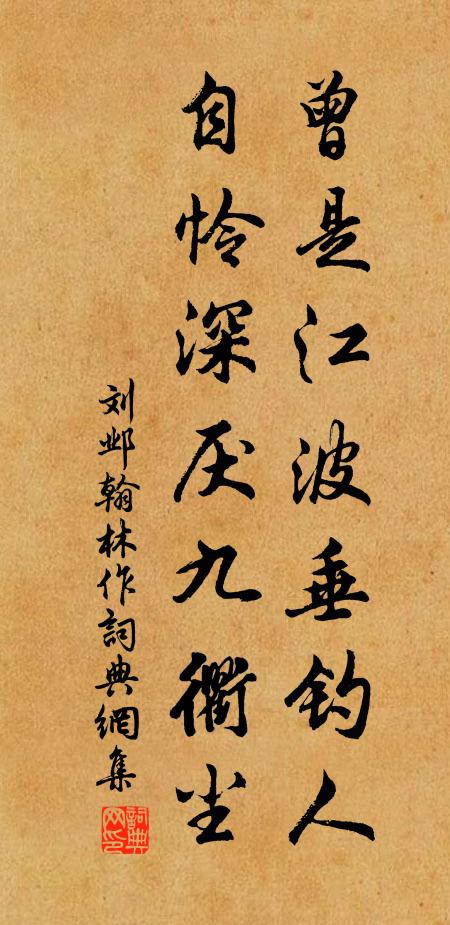 曾是江波垂钓人
自怜深厌九衢尘
刘邺翰林作詞典網集
詞典網印